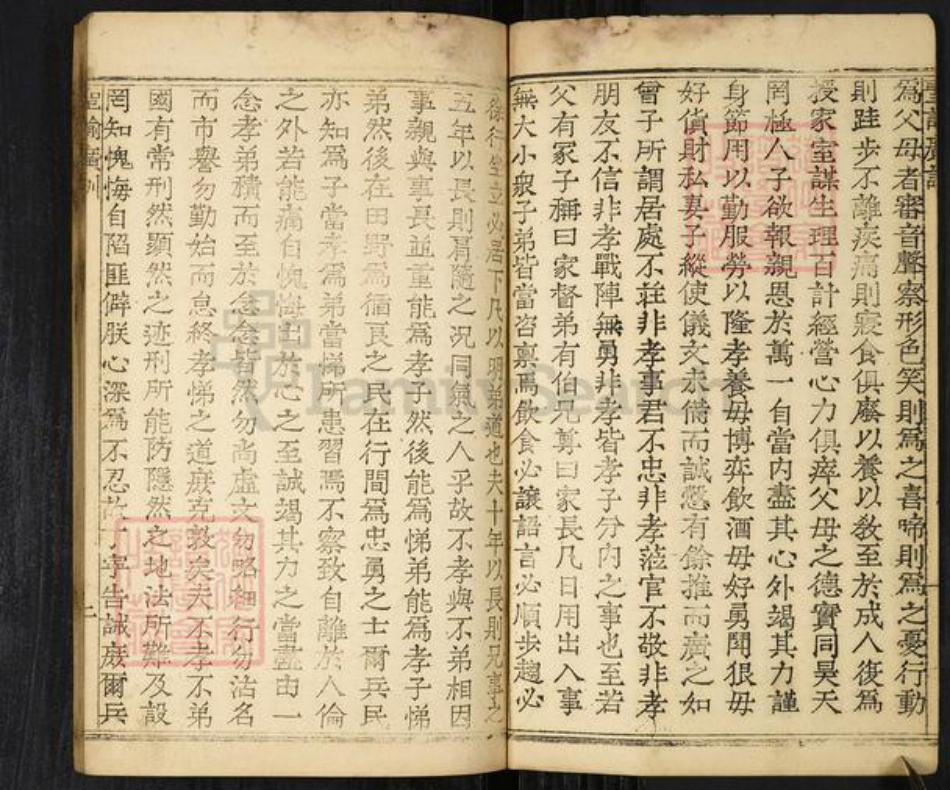 聖諭廣訓
爲父母者審音聲察形色笑則爲之喜啼則爲之憂行動
則跬步不離疾痛則寢食俱廢以養以教至於成人復爲
授家室謀生理百計經營心力俱瘁父母之德實同昊天
罔極人子欲報親恩於萬一自當內盡其心外竭其力謹
身節用以勤服勞以隆孝養毋博弈飲酒毋好勇鬬狠毋
好貨財私妻子縱使儀文未備而誠慤有餘推而廣之如
曾子所謂居處不莊非孝事君不忠非孝蒞官不敬非孝
朋友不信非孝戰陣無勇非孝皆孝子分內之事也至若
父有冢子稱曰家督弟有伯兄尊曰家長凡日用出入事
無大小衆子弟皆當咨禀焉飲食必讓語言必順步趨必
徐行坐立必居下凡以明弟道也夫十年以長則兄事之
五年以長則肩隨之况同氣之人乎故不孝與不弟相因
事親與事長並重能爲孝子然後能爲悌弟能爲孝子悌
弟然後在田野爲循良之民在行間爲忠勇之士爾兵民
亦知爲子當孝爲弟當悌所患習焉不察致自離於人倫
之外若能痛自愧悔出於心之至誠竭其力之當盡由一
念孝弟積而至於念念皆然勿尚虛文勿略細行勿沽名
而市譽勿勤始而怠終孝悌之道庶克敦矣夫不孝不弟
國有常刑然顯然之迹刑所能防隱然之地法所難及設
罔知愧悔自陷匪僻朕心深爲不忍故丁寧告誡庶爾兵
聖諭廣訓
二
FamilySearch